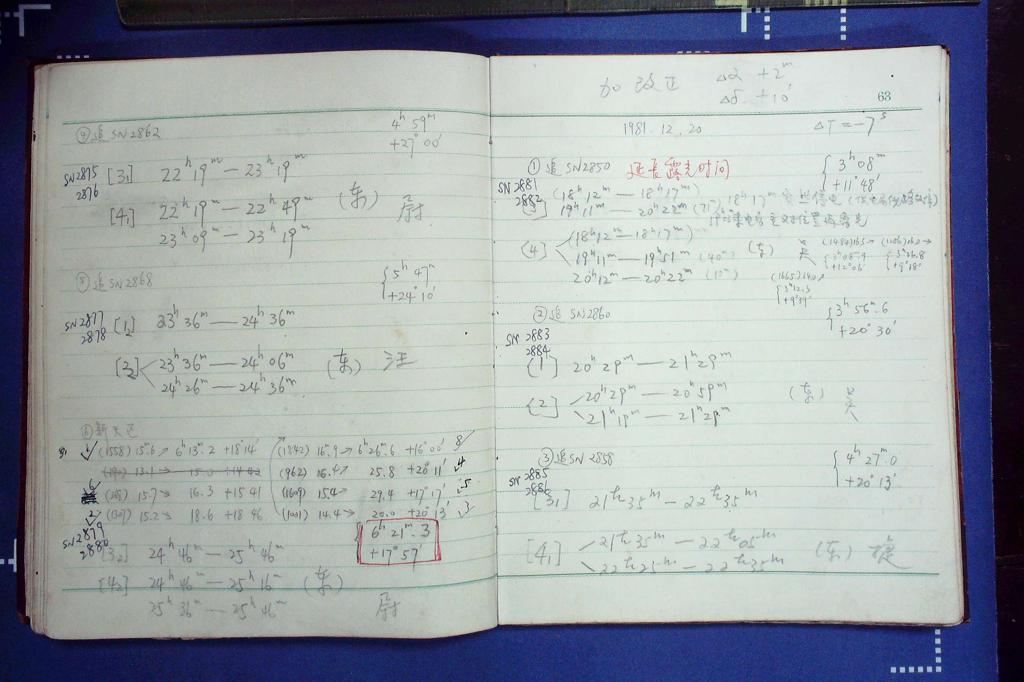 ④追 SN2862
4ʰ 59ᵐ
+27° 00′
SN2875
2876
[3₁] 22ʰ 19ᵐ — 23ʰ 19ᵐ
[4₁] 22ʰ 19ᵐ — 22ʰ 49ᵐ (东) 尉
23ʰ 09ᵐ — 23ʰ 19ᵐ
⑤追 SN2868
5ʰ 47ᵐ
+24° 10′
SN2877
2878
[1₂] 23ʰ 36ᵐ — 24ʰ 36ᵐ
[2₂] 23ʰ 36ᵐ — 24ʰ 06ᵐ (东) 汪
24ʰ 26ᵐ — 24ʰ 36ᵐ
⑥新天区
(1558) 15ᵐ.6 → 6ʰ 13ᵐ.2 +18°14′ (1842) 16ᵐ.9 → 6ʰ 26ᵐ.6 +16°00′ 8
13.1 → 15.0 +14 42 (962) 16.4 → 25.8 +20°11′ 4
6 15.7 → 16.3 +15 41 (1609) 15.4 → 29.4 +17°17′ 5
2 (1309) 15.2 → 18.6 +18 46 (1001) 14.4 → 20.0 +20°13′ 3
SN2879
2880
6ʰ 21ᵐ.3
+17° 57′
[3₂] 24ʰ 46ᵐ — 25ʰ 46ᵐ
[4₂] 24ʰ 46ᵐ — 25ʰ 16ᵐ (东)
25ʰ 36ᵐ — 25ʰ 46ᵐ 尉
加改正 Δα +2ᵐ
Δδ +10′
63
1981. 12. 20 ΔT = −7ˢ
①追 SN2850 延长露光时间
3ʰ 08ᵐ
+11° 48′
SN2881
2882
(18ʰ 12ᵐ — 18ʰ 17ᵐ)
19ʰ 11ᵐ — 20ʰ 22ᵐ (71ᵐ) 18ʰ 17ᵐ 突然停电
[4] (18ʰ12ᵐ — 18ʰ17ᵐ)
19ʰ 11ᵐ — 19ʰ 51ᵐ (40ᵐ) (东) 吴
20ʰ 12ᵐ — 20ʰ 22ᵐ (10ᵐ)
(1484) 16.5
3ʰ 08.9
+12° 06′
3ʰ 12.3
+9° 39′
②追 SN2860
3ʰ 56ᵐ.6
+20° 30′
SN 2883
2884
[1] 20ʰ 29ᵐ — 21ʰ 29ᵐ
[2] 20ʰ 29ᵐ — 20ʰ 59ᵐ (东) 吴
21ʰ 19ᵐ — 21ʰ 29ᵐ
③追 SN 2858
4ʰ 27ᵐ.0
+20° 13′
SN 2885
2886
[3₁] 21ʰ 35ᵐ — 22ʰ 35ᵐ
[4₁] 21ʰ 35ᵐ — 22ʰ 05ᵐ (东) 捷
22ʰ 25ᵐ — 22ʰ 35ᵐ